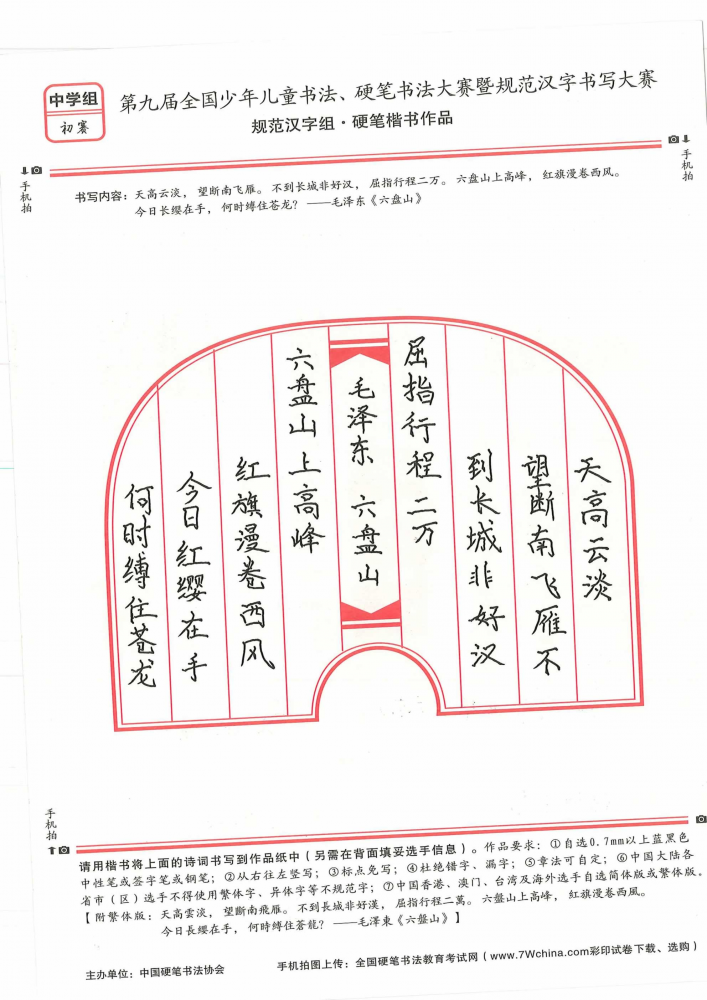 中学组
初赛
第九届全国少年儿童书法、硬笔书法大赛暨规范汉字书写大赛
规范汉字组·硬笔楷书作品
手机拍
手机拍
书写内容：天高云淡，望断南飞雁。不到长城非好汉，屈指行程二万。六盘山上高峰，红旗漫卷西风。
今日长缨在手，何时缚住苍龙？——毛泽东《六盘山》
天高云淡
望断南飞雁不
到长城非好汉
屈指行程二万
毛泽东 六盘山
六盘山上高峰
红旗漫卷西风
今日红缨在手
何时缚住苍龙
手机拍
请用楷书将上面的诗词书写到作品纸中（另需在背面填妥选手信息）。作品要求：①自选0.7mm以上蓝黑色
中性笔或签字笔或钢笔；②从右往左竖写；③标点免写；④杜绝错字、漏字；⑤章法可自定；⑥中国大陆各
省市（区）选手不得使用繁体字、异体字等不规范字；⑦中国香港、澳门、台湾及海外选手自选简体版或繁体版。
【附繁体版：天高雲淡，望斷南飛雁。不到長城非好漢，屈指行程二萬。六盤山上高峰，紅旗漫卷西風。
今日長纓在手，何時縛住蒼龍？——毛澤東《六盤山》】
主办单位：中国硬笔书法协会
手机拍图上传：全国硬笔书法教育考试网（www.7Wchina.com彩印试卷下载、选购）